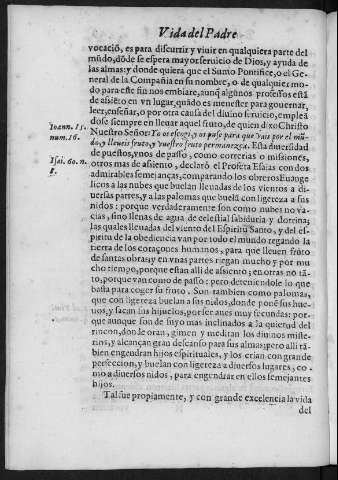 Vida del Padre
vocació, es para discurrir y viuir en qualquiera parte del
mũdo, dõde se espera mayor seruicio de Dios, y ayuda de
las almas: y donde quiera que el Sumo Pontifice, o el Ge-
neral de la Compañia en su nombre, o de qualquier mo-
do para este fin nos embiare, aunq̃ algunos professos està
de asiẽto en vn lugar, quãdo es menester para gouernar,
leer, enseñar, o por otra causa del diuino seruicio, empleã
dose siempre en lleuar aquel fruto, de quien dixo Christo
Ioann. 15. num. 16.
Nuestro Señor: Yo os escogi, y os puse para que vais por el mũ-
do, y lleueis fruto, y vuestro fruto permanezca. Esta diuersidad
Isai. 60. n. 8.
de puestos, vnos de passo, como correrias o missiones,
otros mas de asiento, declarò el Profeta Esaias con dos
admirables semejanças, comparando los obreros Euange
licos a las nubes que buelan lleuadas de los vientos a di-
uersas partes, y a las palomas que buelã con ligereza a sus
nidos: porque verdaderamente son como nubes no va-
cias, sino llenas de agua de celestial sabiduria y dotrina;
las quales lleuadas del viento del Espiritu Santo, y del es-
piritu de la obediencia van por todo el mundo regando la
tierra de los coraçones humanos, para que lleuen fruto
de santas obras: y en vnas partes riegan mucho y por mu
cho tiempo, porque estan alli de assiento, en otras no tã-
to, porque van como de passo: pero deteniendose lo que
basta para coger su fruto. Son tambien como palomas,
que con ligereza buelan a sus nidos, donde ponẽ sus hue-
uos, y sacan sus hijuelos, por ser aues muy fecundas: por-
que aunque son de suyo mas inclinados a la quietud del
rincon, donde oran, gimen y meditan los diuinos miste-
rios, y alcançan gran descanso para sus almas; pero alli tã-
bien engendran hijos espirituales, y los crian con grande
perfeccion, y buelan con ligereza a diuersos lugares, co-
mo a diuersos nidos, para engendrar en ellos semejantes
hijos.
Tal fue propiamente, y con grande excelencia la vida
del